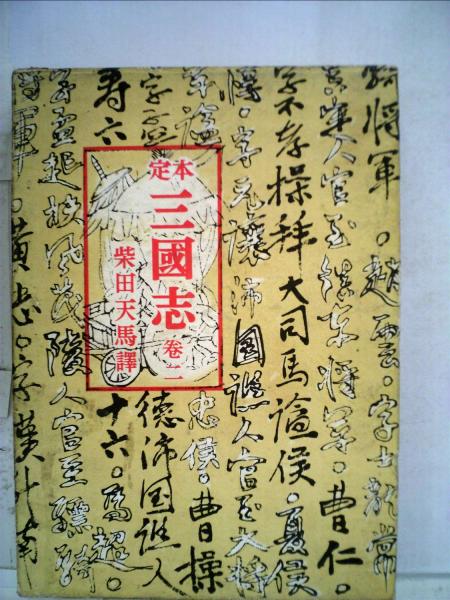 定本
三國志
卷二
柴田天馬譯
將軍。趙雲。字士龍常
將軍。曹仁。
字不孝操拜大司馬謚侯。夏侯
字元讓沛國譙人官至大將
忠侯。曹操
德沛国譙人
寿六十六。馬超。
字孟起扶风茂陵人官至驃騎
將軍。黃忠。字漢升南